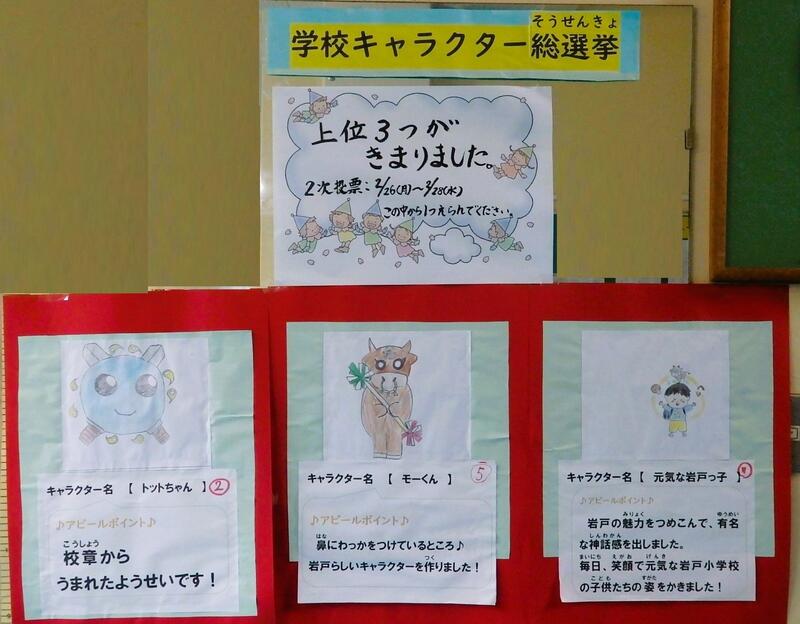 そうせんきょ
学校キャラクター総選挙
上位3つが
きまりました。
2次投票:2/26(月)~2/28(水)
この中から1つえらんでください。
キャラクター名 【 トットちゃん 】②
♪アピールポイント♪
こうしょう
校章から
うまれたようせいです!
キャラクター名 【 モーくん 】⑤
♪アピールポイント♪
はな
鼻にわっかをつけているところ♪
つく
岩戸らしいキャラクターを作りました!
キャラクター名【 元気な岩戸っ子 】
♪アピールポイント♪
みりょく ゆうめい
岩戸の魅力をつめこんで、有名
しんわかん
な神話感を出しました。
まいにち えがお げんき
毎日、笑顔で元気な岩戸小学校
こども すがた
の子供たちの姿をかきました!